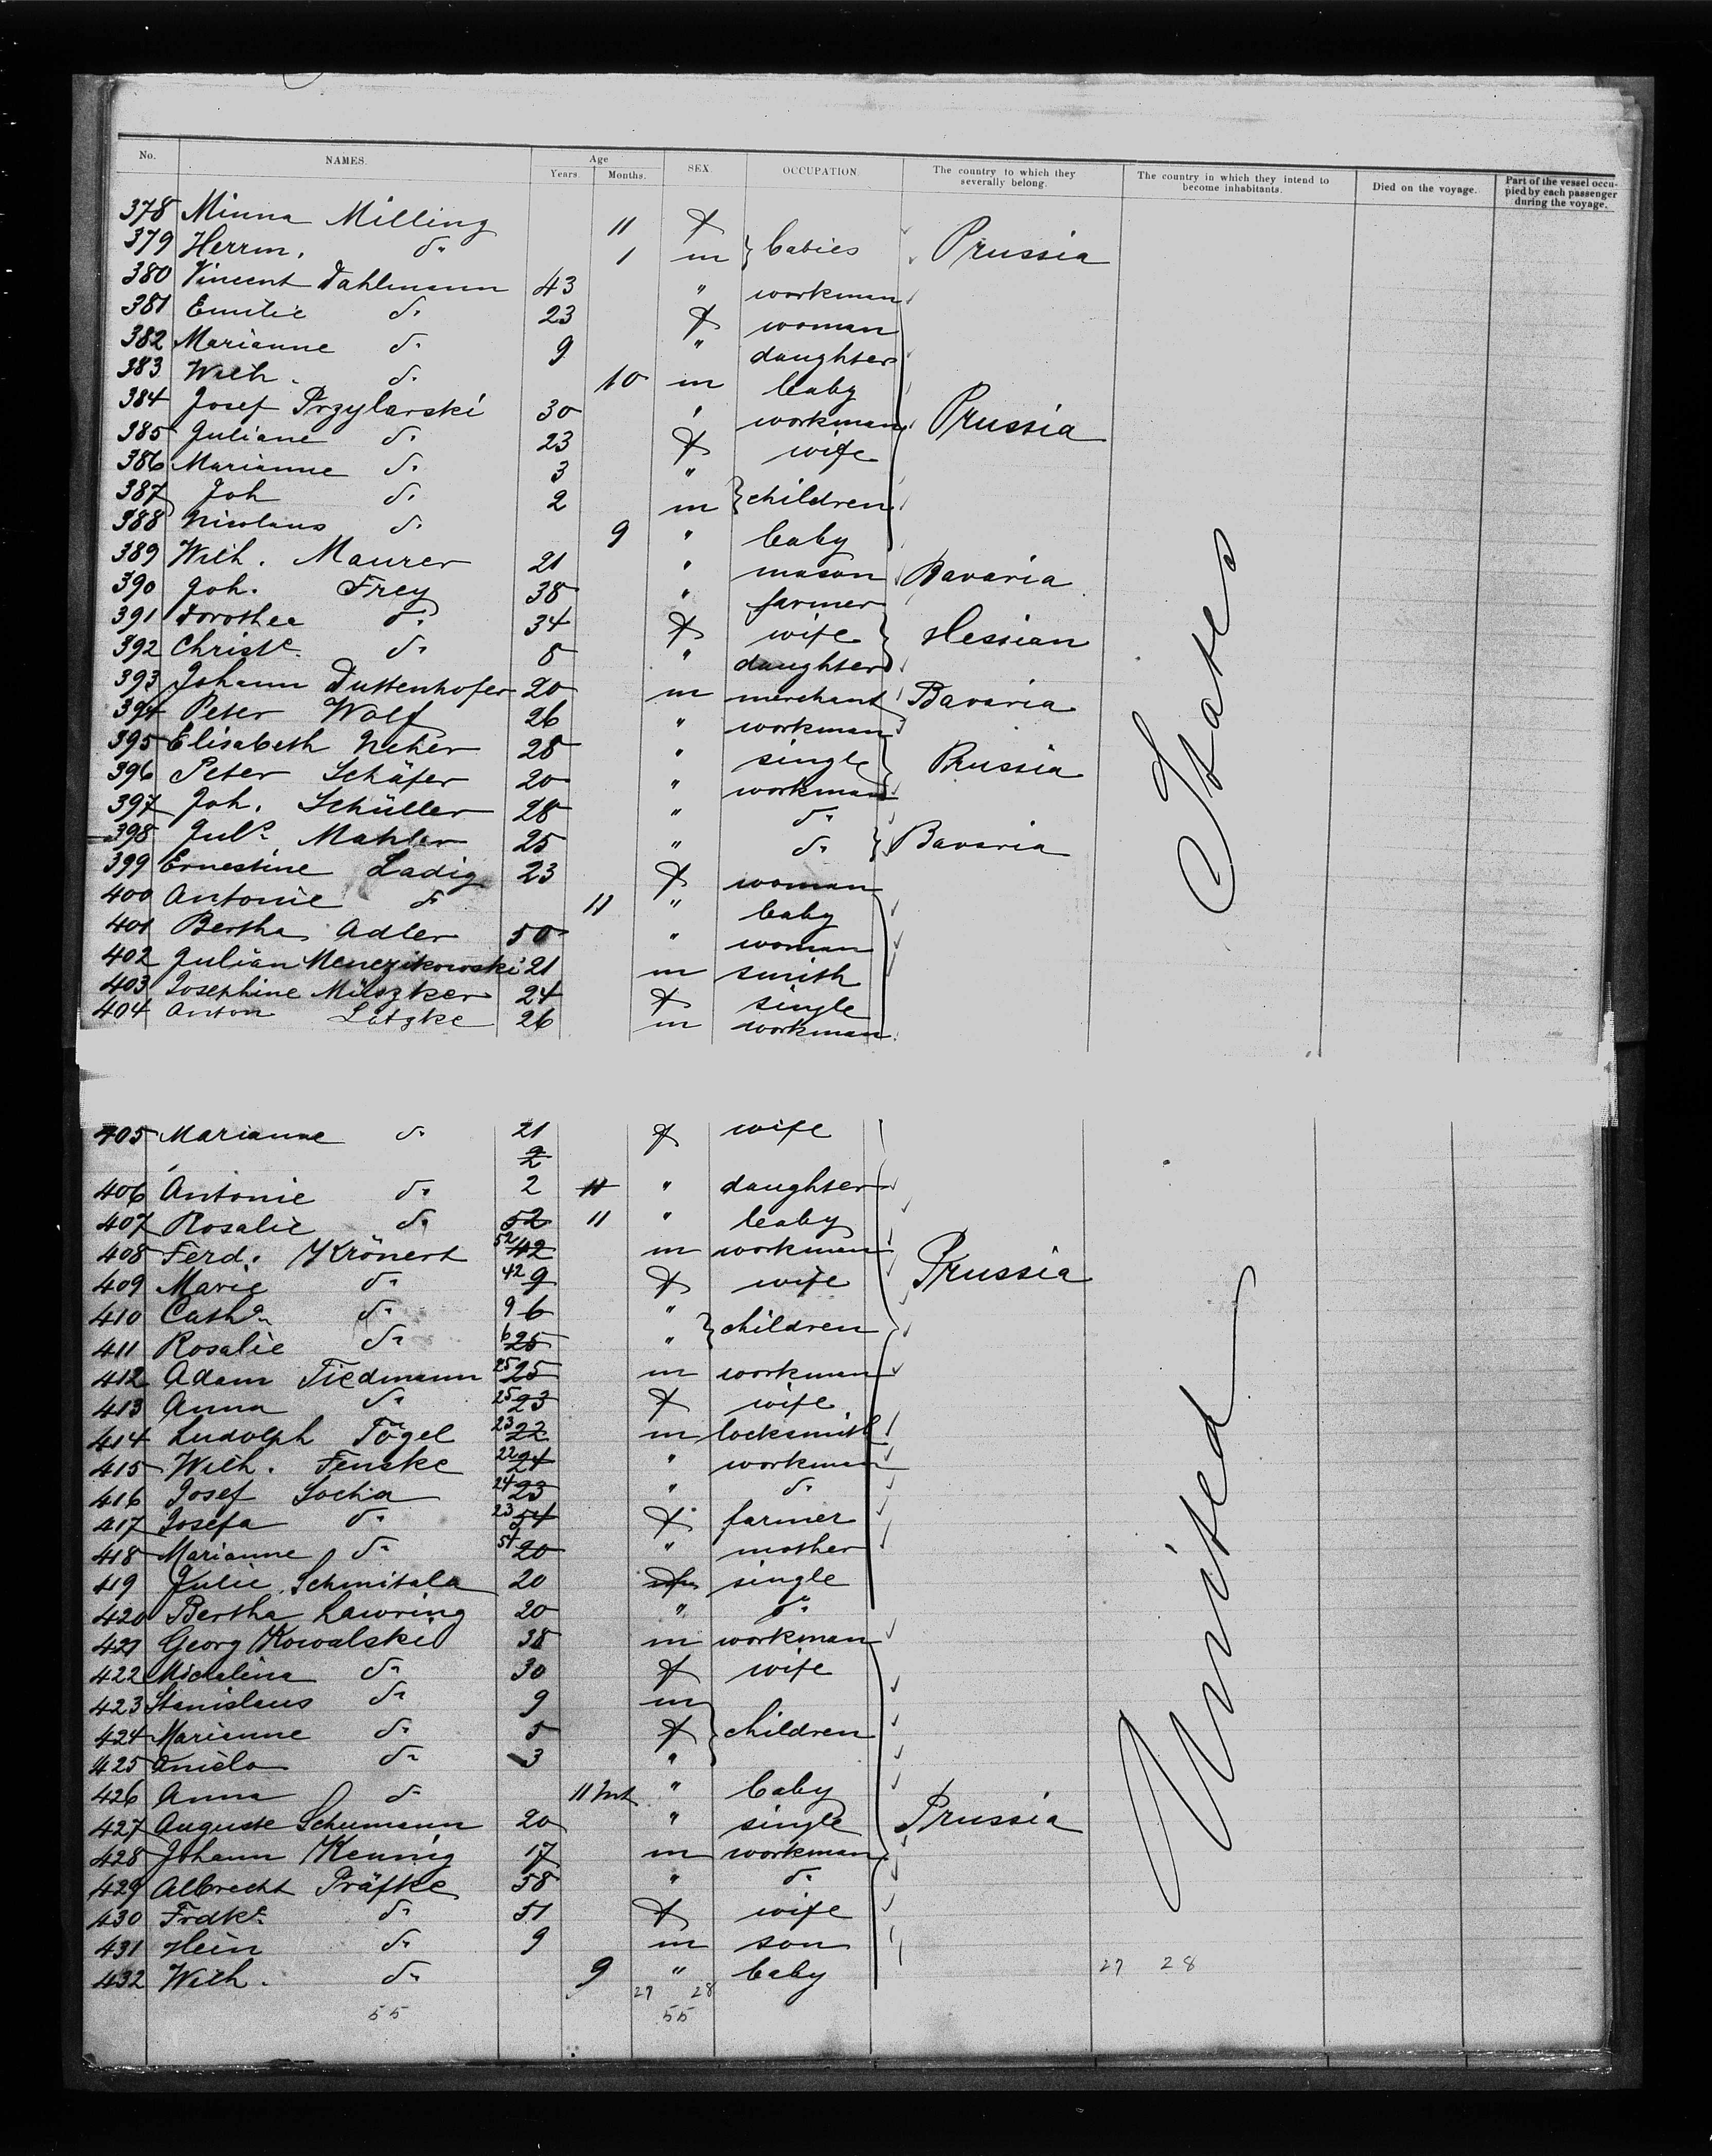 No. NAMES. Age Years. Months. SEX. OCCUPATION. The country to which they severally belong. The country in which they intend to become inhabitants. Died on the voyage. Part of the vessel occupied by each passenger during the voyage.
378 Minna Milling 11 f
379 Herrm. do 1 m } babies Prussia
380 Vincent Dahlmann 43 " workman
381 Emilie do 23 f woman
382 Marianne do 9 " daughter
383 Wilh. do 10 m baby
384 Josef Przylarski 30 " workman Prussia
385 Juliane do 23 f wife
386 Marianne do 3 "
387 Joh do 2 m } children
388 Nicolaus do 9 " baby
389 Wilh. Maurer 21 " mason Bavaria
390 Joh. Frey 38 " farmer
391 Dorothea do 34 f wife Hessian
392 Christe. do 8 " daughter
393 Johann Duttenhofer 20 m merchant Bavaria
394 Peter Wolf 26 " workman
395 Elisabeth Neher 28 " single Prussia
396 Peter Schäfer 20 " workman
397 Joh. Schüller 28 " do
398 Juls. Mahler 25 " do Bavaria
399 Ernestine Ladig 23 f woman
400 Antonie do 11 " baby
401 Bertha Adler 50 " woman
402 Julian Menczikowski 21 m smith
403 Josephine 24 f single
404 Anton Latzke 26 m workman
405 Marianne do 21 f wife
2
406 Antonie do 2 11 " daughter
407 Rosalie do 52 11 " baby
408 Ferd. Krönert 52 42 m workman Prussia
409 Marie do 42 9 f wife
410 Catha do 9 6 "
411 Rosalie do 6 25 " } children
412 Adam Tiedmann 25 25 m workman
413 Anna do 25 23 f wife
414 Ludolph Togel 23 22 m locksmith
415 Wilh. Fenske 22 24 " workman
416 Josef Socha 24 23 " do
417 Josefa do 23 54 f farmer
418 Marianne do 54 20 " mother
419 Julie Schmitala 20 single
420 Bertha Lawring 20 " do
421 Georg Kowalski 38 m workman
422 Michalina do 30 f wife
423 Stanislaus do 9 m
424 Marianne do 5 f } children
425 Aniela do 3 "
426 Anna do 11 Mt " baby
427 Auguste Schumann 20 " single Prussia
428 Johann Kennig 17 m workman
429 Albrecht Präfke 58 " do
430 Frdke. do 51 f wife
431 Hein do 9 m son
432 Wilh. do 9 " baby
27 28
27 28
55 55
United States